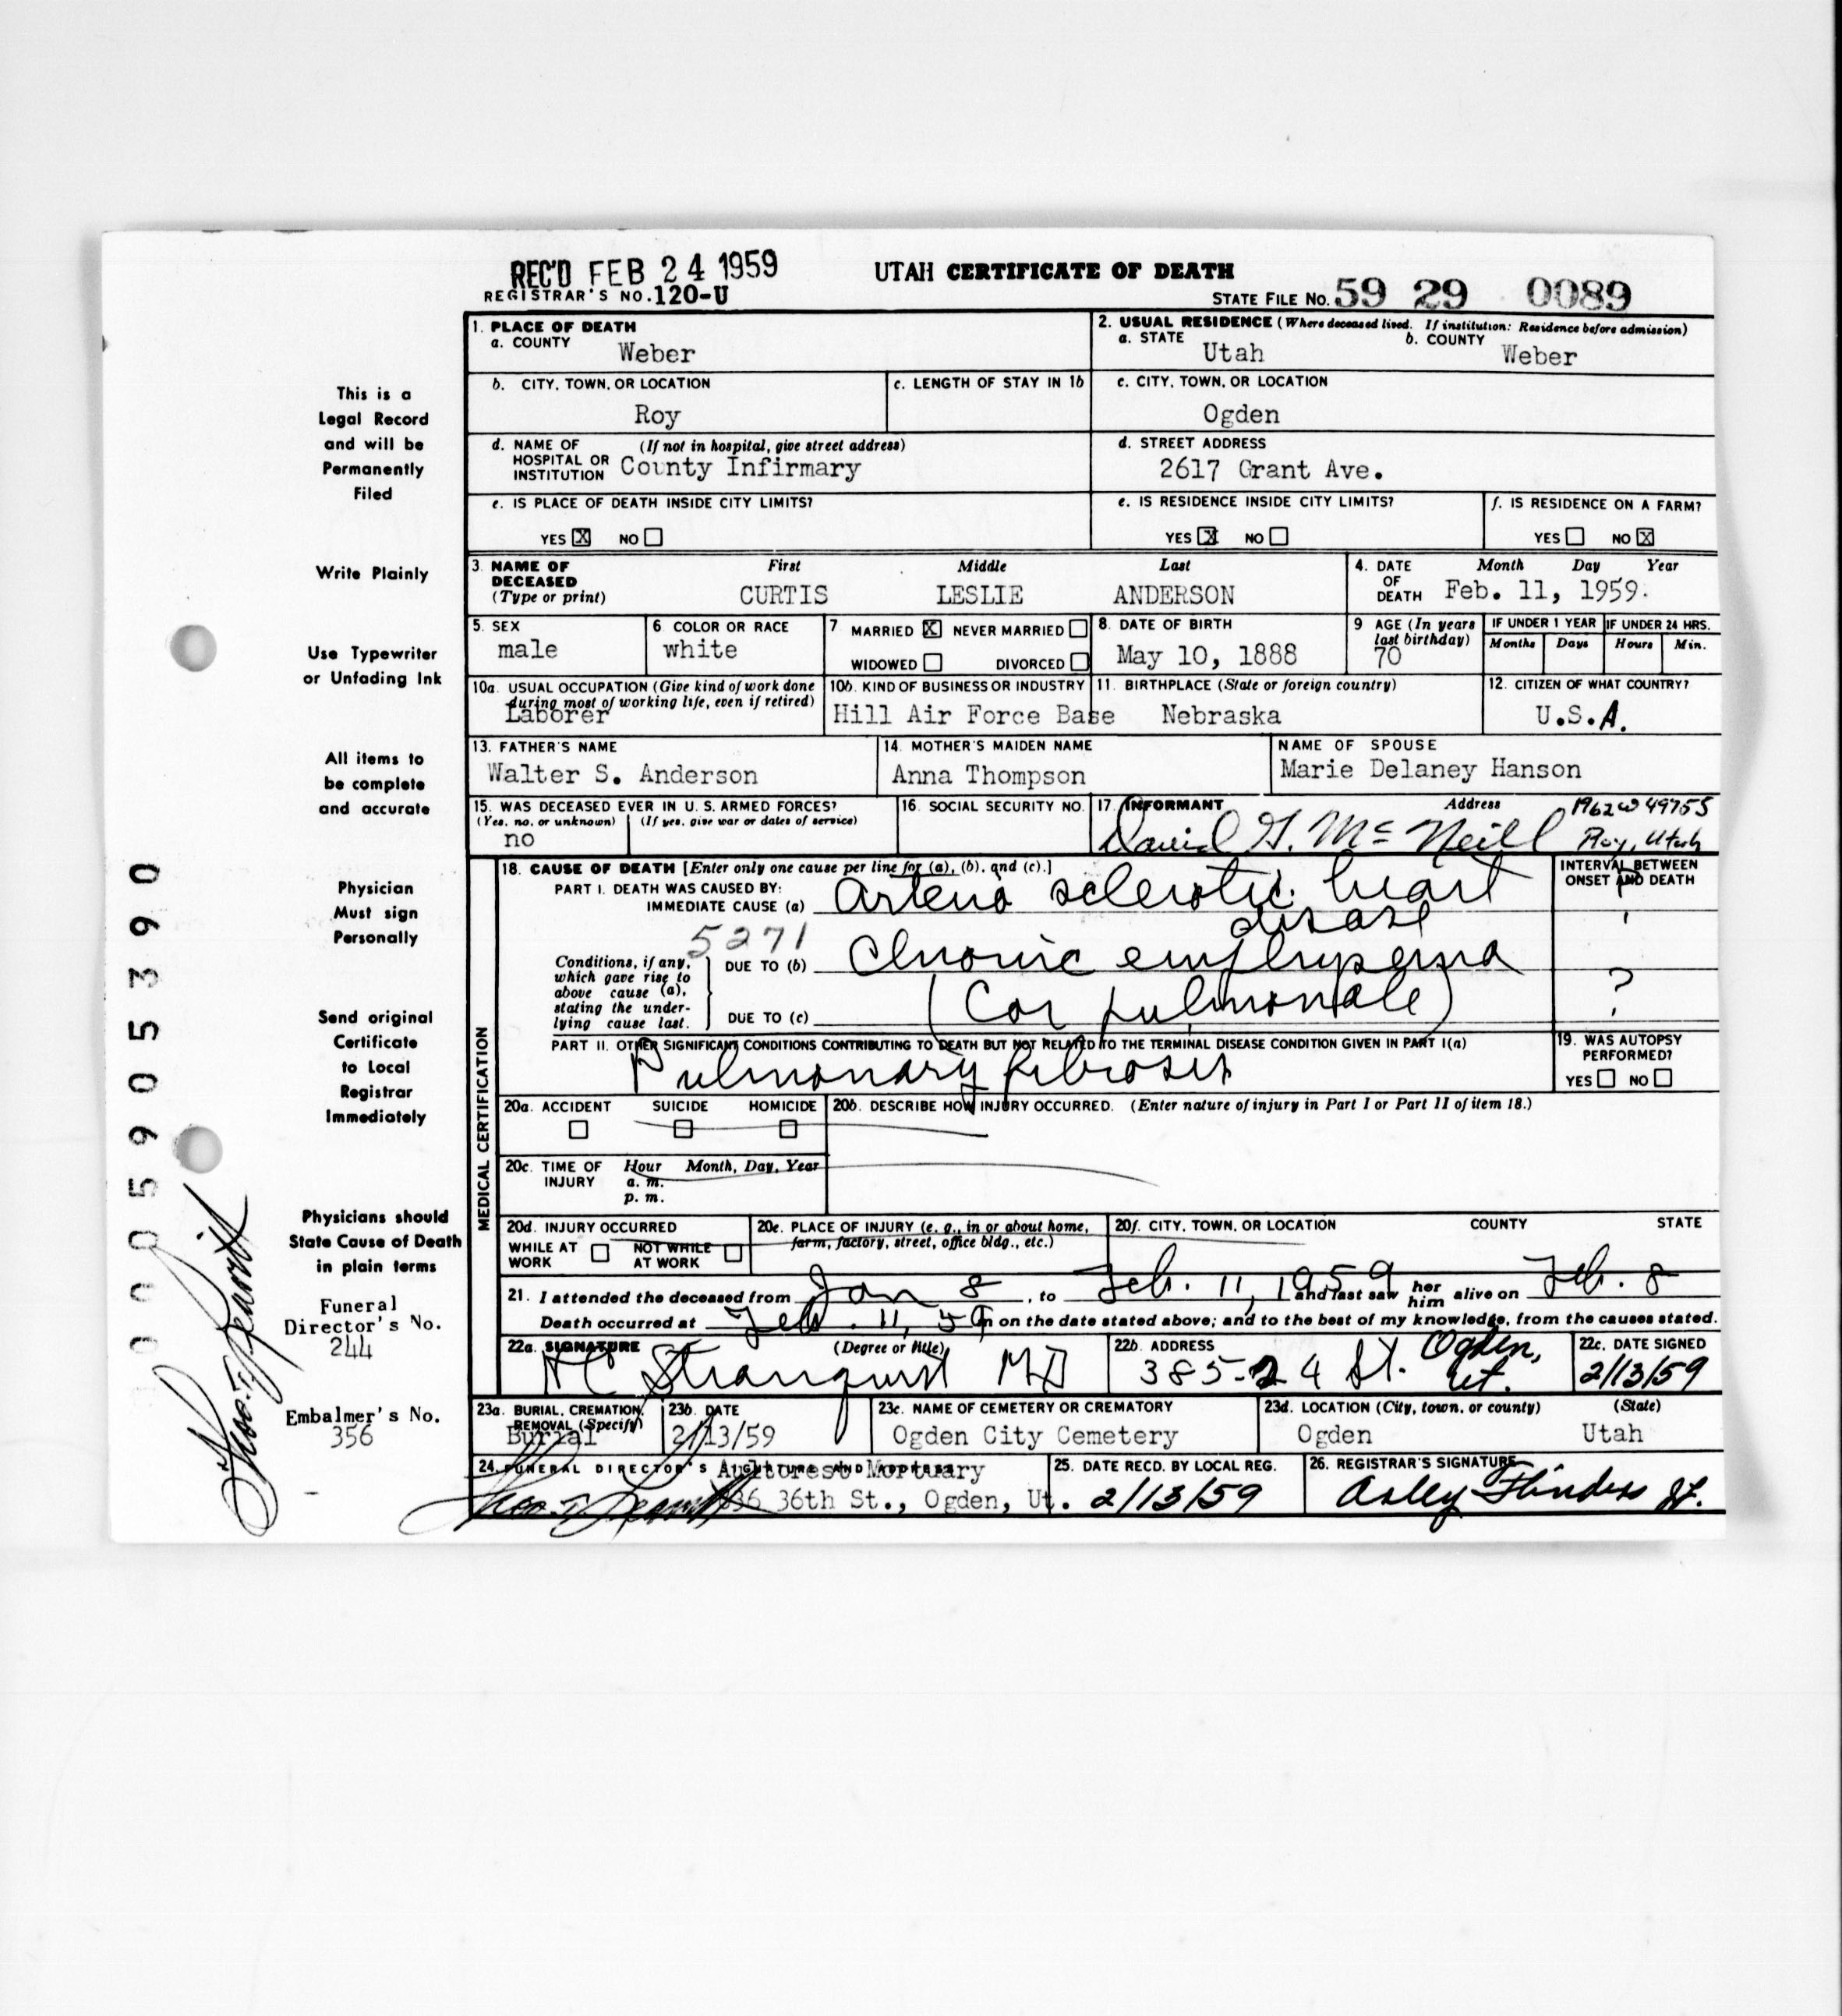 REC'D FEB 24 1959
UTAH CERTIFICATE OF DEATH
REGISTRAR'S NO. 120-U
STATE FILE NO. 59 29 0089
This is a
Legal Record
and will be
Permanently
Filed
Write Plainly
Use Typewriter
or Unfading Ink
All items to
be complete
and accurate
Physician
Must sign
Personally
Send original
Certificate
to Local
Registrar
Immediately
Physicians should
State Cause of Death
in plain terms
Funeral
Director's No.
244
Embalmer's No.
356
1. PLACE OF DEATH
a. COUNTY Weber
2. USUAL RESIDENCE (Where deceased lived. If institution: Residence before admission)
a. STATE Utah b. COUNTY Weber
b. CITY, TOWN, OR LOCATION
Roy
c. LENGTH OF STAY IN 1b
c. CITY, TOWN, OR LOCATION
Ogden
d. NAME OF HOSPITAL OR INSTITUTION (If not in hospital, give street address)
County Infirmary
d. STREET ADDRESS
2617 Grant Ave.
e. IS PLACE OF DEATH INSIDE CITY LIMITS?
YES X NO
e. IS RESIDENCE INSIDE CITY LIMITS?
YES X NO
f. IS RESIDENCE ON A FARM?
YES NO X
3. NAME OF DECEASED (Type or print)
First Middle Last
CURTIS LESLIE ANDERSON
4. DATE OF DEATH Month Day Year
Feb. 11, 1959.
5. SEX
male
6. COLOR OR RACE
white
7 MARRIED X NEVER MARRIED
WIDOWED DIVORCED
8. DATE OF BIRTH
May 10, 1888
9 AGE (In years last birthday)
70
IF UNDER 1 YEAR
Months Days
IF UNDER 24 HRS.
Hours Min.
10a. USUAL OCCUPATION (Give kind of work done during most of working life, even if retired)
Laborer
10b. KIND OF BUSINESS OR INDUSTRY
Hill Air Force Base
11. BIRTHPLACE (State or foreign country)
Nebraska
12. CITIZEN OF WHAT COUNTRY?
U.S.A.
13. FATHER'S NAME
Walter S. Anderson
14. MOTHER'S MAIDEN NAME
Anna Thompson
NAME OF SPOUSE
Marie Delaney Hanson
15. WAS DECEASED EVER IN U. S. ARMED FORCES?
(Yes, no, or unknown) (If yes, give war or dates of service)
no
16. SOCIAL SECURITY NO.
17. INFORMANT Address
David G. McNeill
1962 W 4975 S
Roy, Utah
18. CAUSE OF DEATH [Enter only one cause per line for (a), (b), and (c).]
INTERVAL BETWEEN ONSET AND DEATH
PART I. DEATH WAS CAUSED BY:
IMMEDIATE CAUSE (a) Arterio sclerotic heart
disease
?
5271
Conditions, if any, which gave rise to above cause (a), stating the underlying cause last.
DUE TO (b) Chronic emphysema
DUE TO (c) (Cor pulmonale)
?
PART II. OTHER SIGNIFICANT CONDITIONS CONTRIBUTING TO DEATH BUT NOT RELATED TO THE TERMINAL DISEASE CONDITION GIVEN IN PART I(a)
Pulmonary fibrosis
19. WAS AUTOPSY PERFORMED?
YES NO
MEDICAL CERTIFICATION
20a. ACCIDENT SUICIDE HOMICIDE
20b. DESCRIBE HOW INJURY OCCURRED. (Enter nature of injury in Part I or Part II of item 18.)
20c. TIME OF INJURY Hour Month, Day, Year
a. m.
p. m.
20d. INJURY OCCURRED
WHILE AT WORK NOT WHILE AT WORK
20e. PLACE OF INJURY (e. g., in or about home, farm, factory, street, office bldg., etc.)
20f. CITY, TOWN, OR LOCATION COUNTY STATE
21. I attended the deceased from Jan 8, to Feb. 11, 1959 and last saw her him alive on Feb. 8
Death occurred at Feb. 11, 59 m on the date stated above; and to the best of my knowledge, from the causes stated.
22a. SIGNATURE (Degree or title)
MC Stranquist MD
22b. ADDRESS
385-24 St. Ogden, Ut.
22c. DATE SIGNED
2/13/59
23a. BURIAL, CREMATION, REMOVAL (Specify)
Burial
23b. DATE
2/13/59
23c. NAME OF CEMETERY OR CREMATORY
Ogden City Cemetery
23d. LOCATION (City, town, or county) (State)
Ogden Utah
24. FUNERAL DIRECTOR'S SIGNATURE AND ADDRESS
Aultorest Mortuary
836 36th St., Ogden, Ut.
25. DATE RECD. BY LOCAL REG.
2/13/59
26. REGISTRAR'S SIGNATURE
Flinders